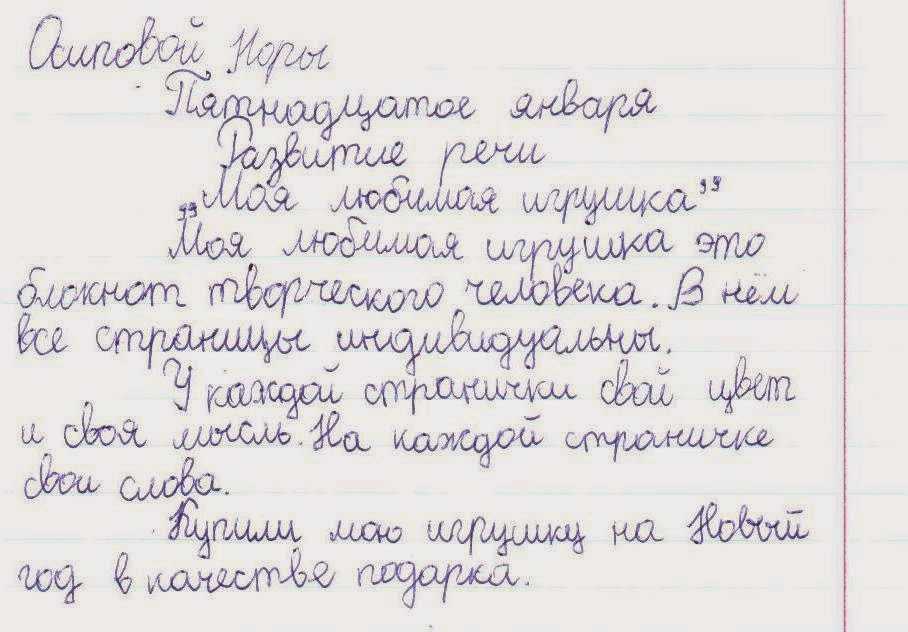 Осиповой Норы
Пятнадцатое января
Развитие речи
„Моя любимая игрушка”
Моя любимая игрушка это
блокнот творческого человека. В нём
все страницы индивидуальны.
У каждой странички свой цвет
и своя мысль. На каждой страничке
свои слова.
Купили мою игрушку на Новый
год в качестве подарка.